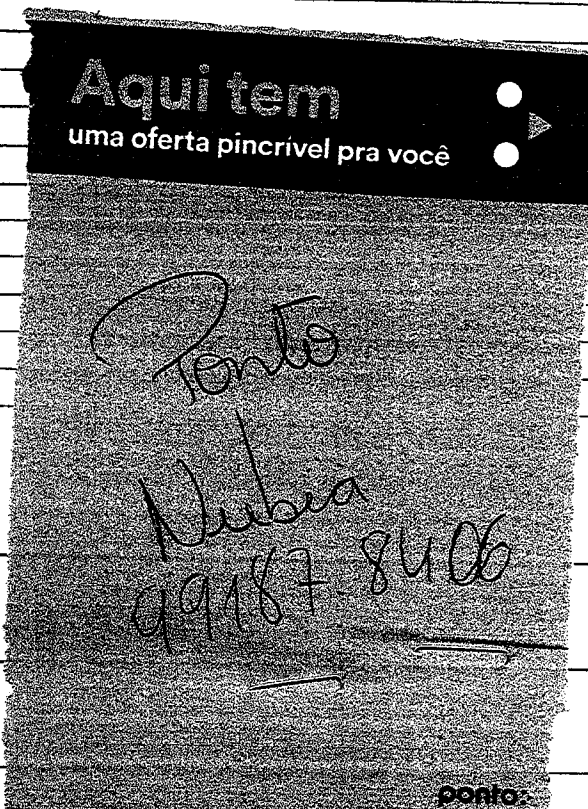 Aqui tem
uma oferta pincrível pra você
Ponto
Nubia
99187-8406
ponto: